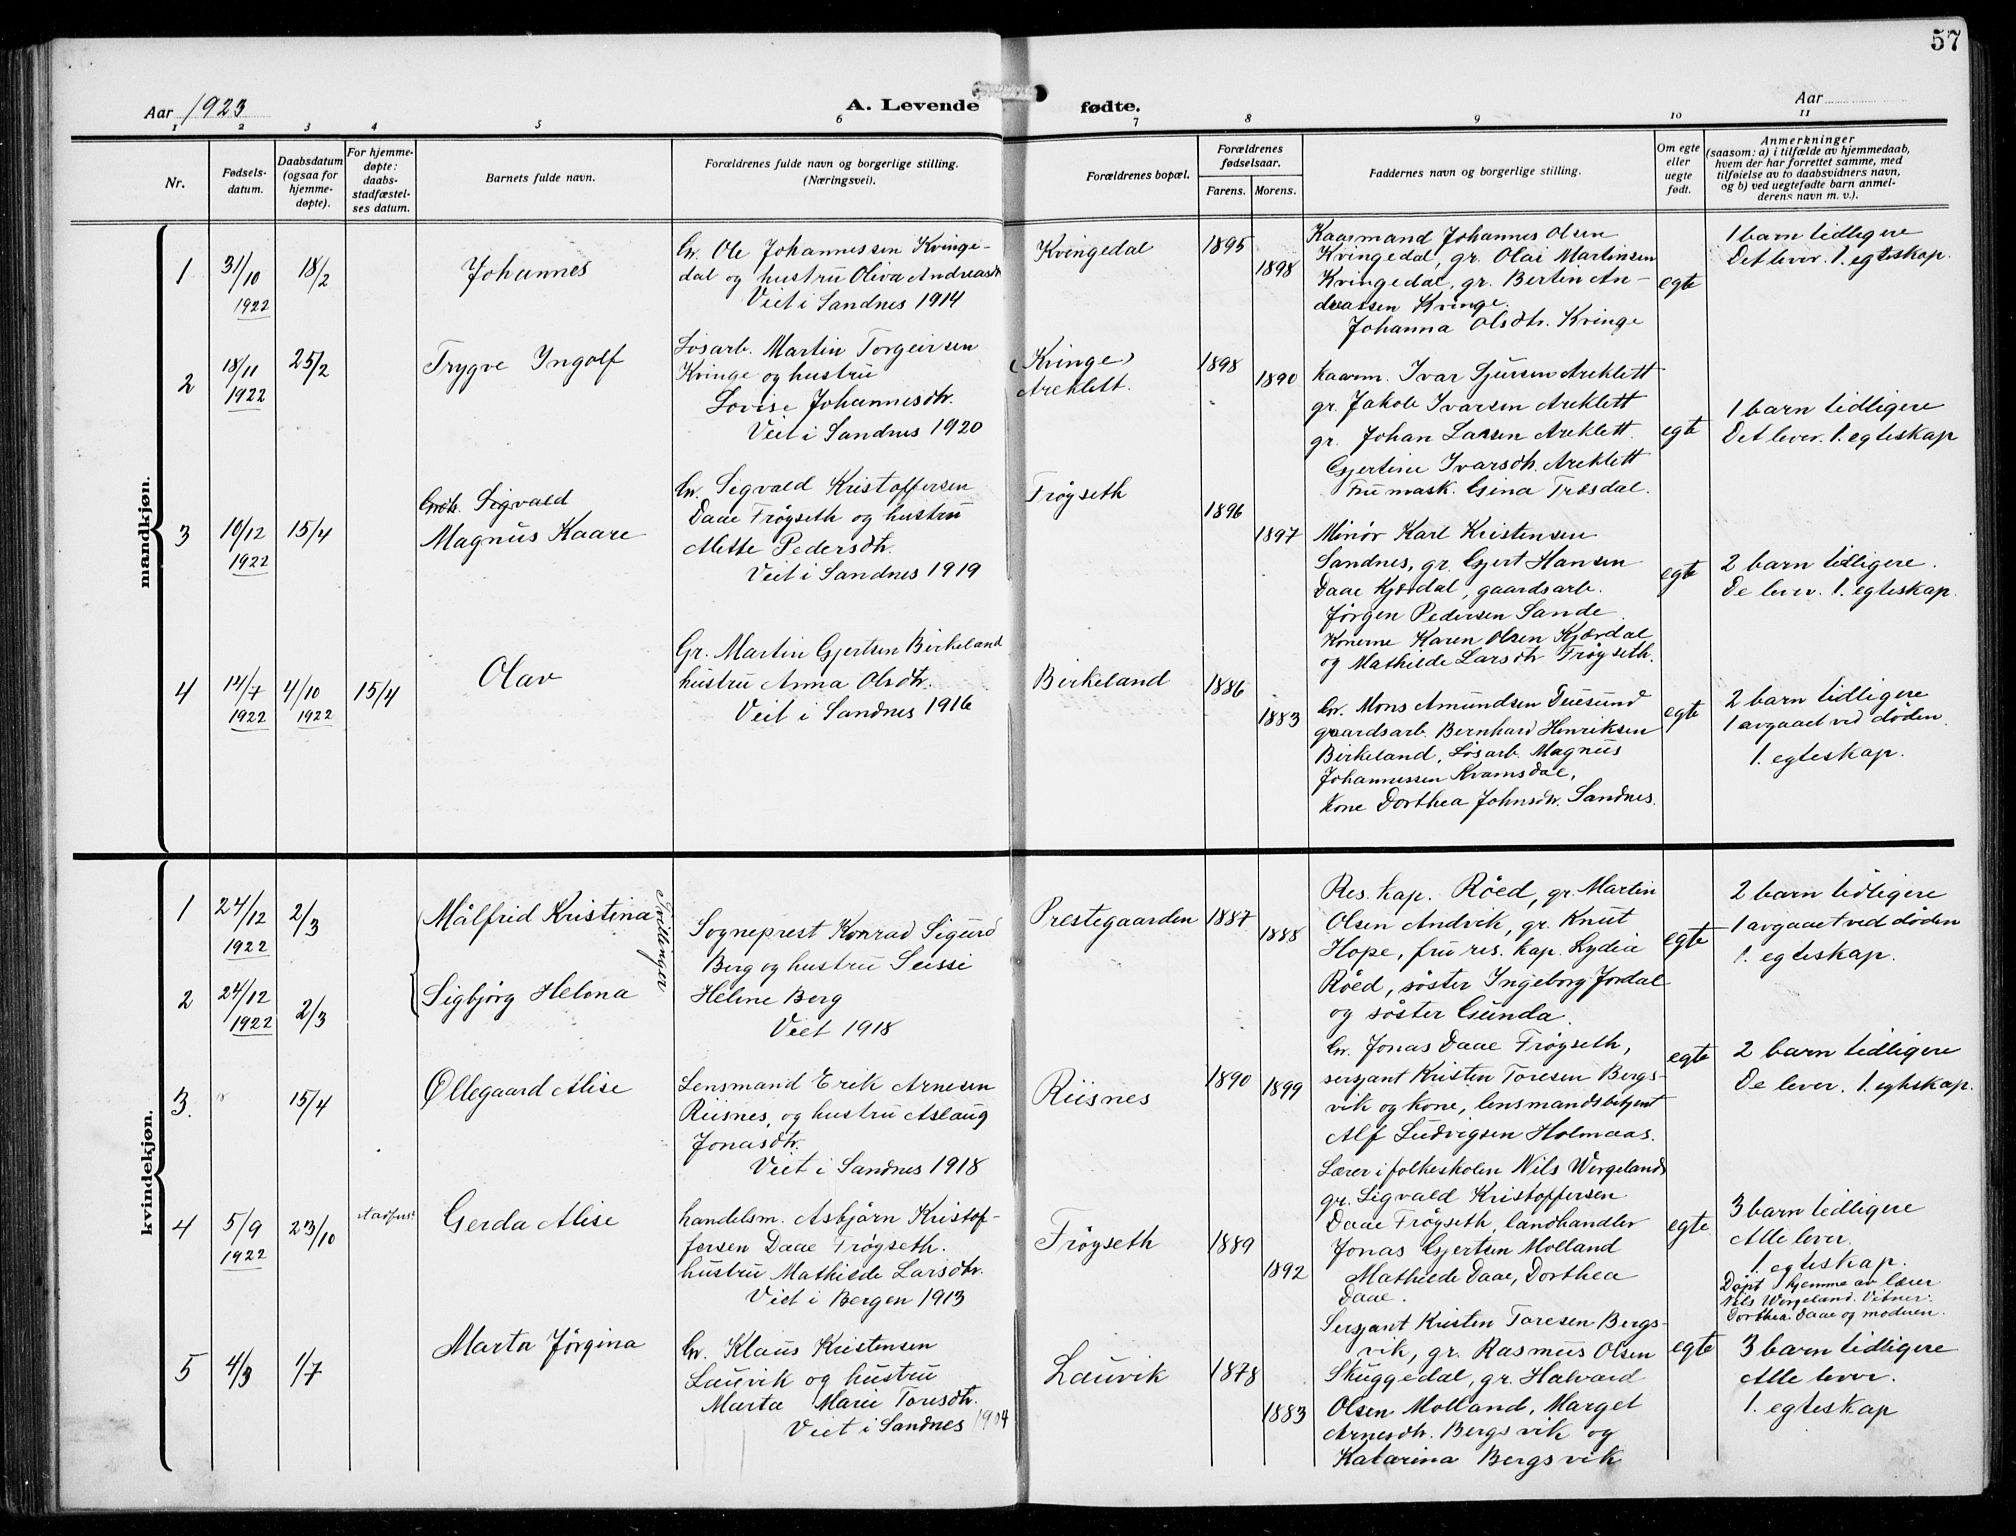 57
Aar 1923
A. Levende fødte.
Aar
1 2 3 4 5 6 7 8 9 10 11
Nr.
Fødsels-
datum.
Daabsdatum
(ogsaa for
hjemme-
døpte).
For hjemme-
døpte:
daabs-
stadfæstel-
ses datum.
Barnets fulde navn.
Forældrenes fulde navn og borgerlige stilling.
(Næringsvei).
Forældrenes bopæl.
Forældrenes
fødselsaar.
Farens. Morens.
Faddernes navn og borgerlige stilling.
Om egte
eller
uegte
født.
Anmerkninger
(saasom: a) i tilfælde av hjemmedaab,
hvem der har forrettet samme, med
tilføielse av to daabsvidners navn,
og b) ved uegtefødte barn anmel-
derens navn m. v.).
mandkjøn.
1
31/10
1922
18/2
Johannes
Gr. Ole Johannessen Kvinge-
dal og hustru Oliva Andreasdtr
Viet i Sandnes 1914
Kvingedal
1895
1898
Kaarmand Johannes Olsen
Kvingedal, gr. Olai Martinsen
Kvingedal, gr. Bertin An-
dreassen Kvinge.
Johanna Olsdtr. Kvinge
egte
1 barn tidligere
Det lever. 1. egteskap.
2
18/11
1922
25/2
Trygve Yngolf
Løsarb. Martin Torgeirsen
Kvinge og hustru
Lovise Johannesdtr.
Viet i Sandnes 1920
(Kvinge)
Areklett.
1898
1890
kaarm. Ivar Sjursen Areklett
gr. Jakob Ivarsen Areklett
gr. Johan Larsen Areklett.
Gjertine Ivarsdtr. Areklett
Fru mask. Gina Træsdal.
egte
1 barn tidligere
Det lever. 1. egteskap
3
10/12
1922
15/4
Sigvald
Magnus Kaare
Gr. Sigvald Kristoffersen
Daae Frøyseth og hustru
Mette Pedersdtr.
Viet i Sandnes 1919
Frøyseth
1896
1897
Minør Karl Kristensen
Sandnes, gr. Gjert Hansen
Daae Kjærdal, gaardsarb.
Jørgen Pedersen Sande
Konerne Karen Olsen Kjærdal
og Mathilde Larsdtr Frøyseth.
egte
2 barn tidligere.
De lever. 1. egteskap.
4
14/7
1922
4/10
1922
15/4
Olav
Gr. Martin Gjertsen Birkeland
hustru Anna Olsdtr.
Viet i Sandnes 1916
Birkeland
1886
1883
Gr. Mons Amundsen Duesund
gaardsarb. Bernhard Henriksen
Birkeland, Løsarb. Magnus
Johannessen Kvamsdal,
Kone Dorthea Johnsdtr. Sandnes.
egte
2 barn tidligere
1 avgaaet ved døden.
1. egteskap.
kvindekjøn.
1
24/12
1922
2/3
Målfrid Kristina
Tvillinger
Sogneprest Konrad Sigurd
Berg og hustru Seissi
Helene Berg
Viet 1918
Prestegaarden
1887
1888
Res. kap. Røed, gr. Martin
Olsen Andvik, gr. Knut
Hope, fru res. kap. Lydia
Røed, søster Ingeborg Jordal
og søster Gunda.
egte
2 barn tidligere
1 avgaaet ved døden
1. egteskap.
2
24/12
1922
2/3
Sigbjørg Helena
3.
15/4
Øllegaard Alise
Lensmand Erik Arnesen
Riisnes, og hustru Aslaug
Jonasdtr.
Viet i Sandnes 1918
Riisnes
1890
1899
Gr. Jonas Daae Frøyseth,
sersjant Kristen Toresen Bergs-
vik og kone, lensmandsbetjent
Alf Ludvigsen Holmaas.
egte
2 barn tidligere
De lever. 1. egteskap.
4
5/9
1922
23/10
Gerda Alise
handelsm. Asbjørn Kristof-
fersen Daae Frøyseth.
hustru Mathilde Larsdtr.
Viet i Bergen 1913
Frøyseth
1889
1892
Lærer i folkeskolen Nils Wergeland
gr. Sigvald Kristoffersen
Daae Frøyseth, landhandler
Jonas Gjertsen Molland
Mathilde Daae, Dorthea
Daae.
egte
3 barn tidligere
Alle lever.
1. egteskap.
Døpt hjemme av lærer
Nils Wergeland. Vitner:
Dorthea Daae og moderen.
5
4/3
1/7
Marta Jørgina
Gr. Klaus Kristensen
Lauvik og hustru
Marta Marie Toresdtr.
Viet i Sandnes 1904
Lauvik
1878
1883
Sersjant Kristen Toresen Bergs-
vik, gr. Rasmus Olsen
Skuggedal, gr. Halvard
Olsen Molland, Marget
Arnesdtr. Bergsvik og
Katarina Bergsvik
egte
3 barn tidligere
Alle lever.
1. egteskap